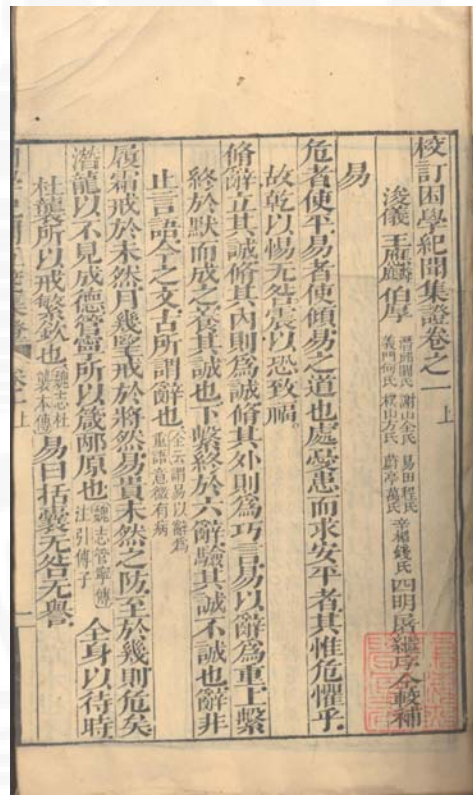 校訂困學紀聞集證卷之一上
浚儀 王應麟 伯厚 潛邱閻氏 謝山全氏 易田程氏 義門何氏 樸山方氏 蔚亭萬氏 辛楣錢氏 四明屠繼序仝較補
易
危者使平易者使傾易之道也處憂患而求安平者其惟危懼乎
故乾以惕无咎震以恐致福。
脩辭立其誠脩其內則為誠脩其外則為巧言易以辭為重上繫
終於默而成之養其誠也下繫終於六辭驗其誠不誠也辭非
止言語今之文古所謂辭也 全云謂易以辭為重語意微有病
履霜戒於未然月幾望戒於將然易貴未然之防至於幾則危矣
潛龍以不見成德管寧所以箴邴原也 魏志管寧傳注引傅子 全身以待時
杜襲所以戒繁欽也 魏志杜襲本傳 易曰括囊无咎无譽